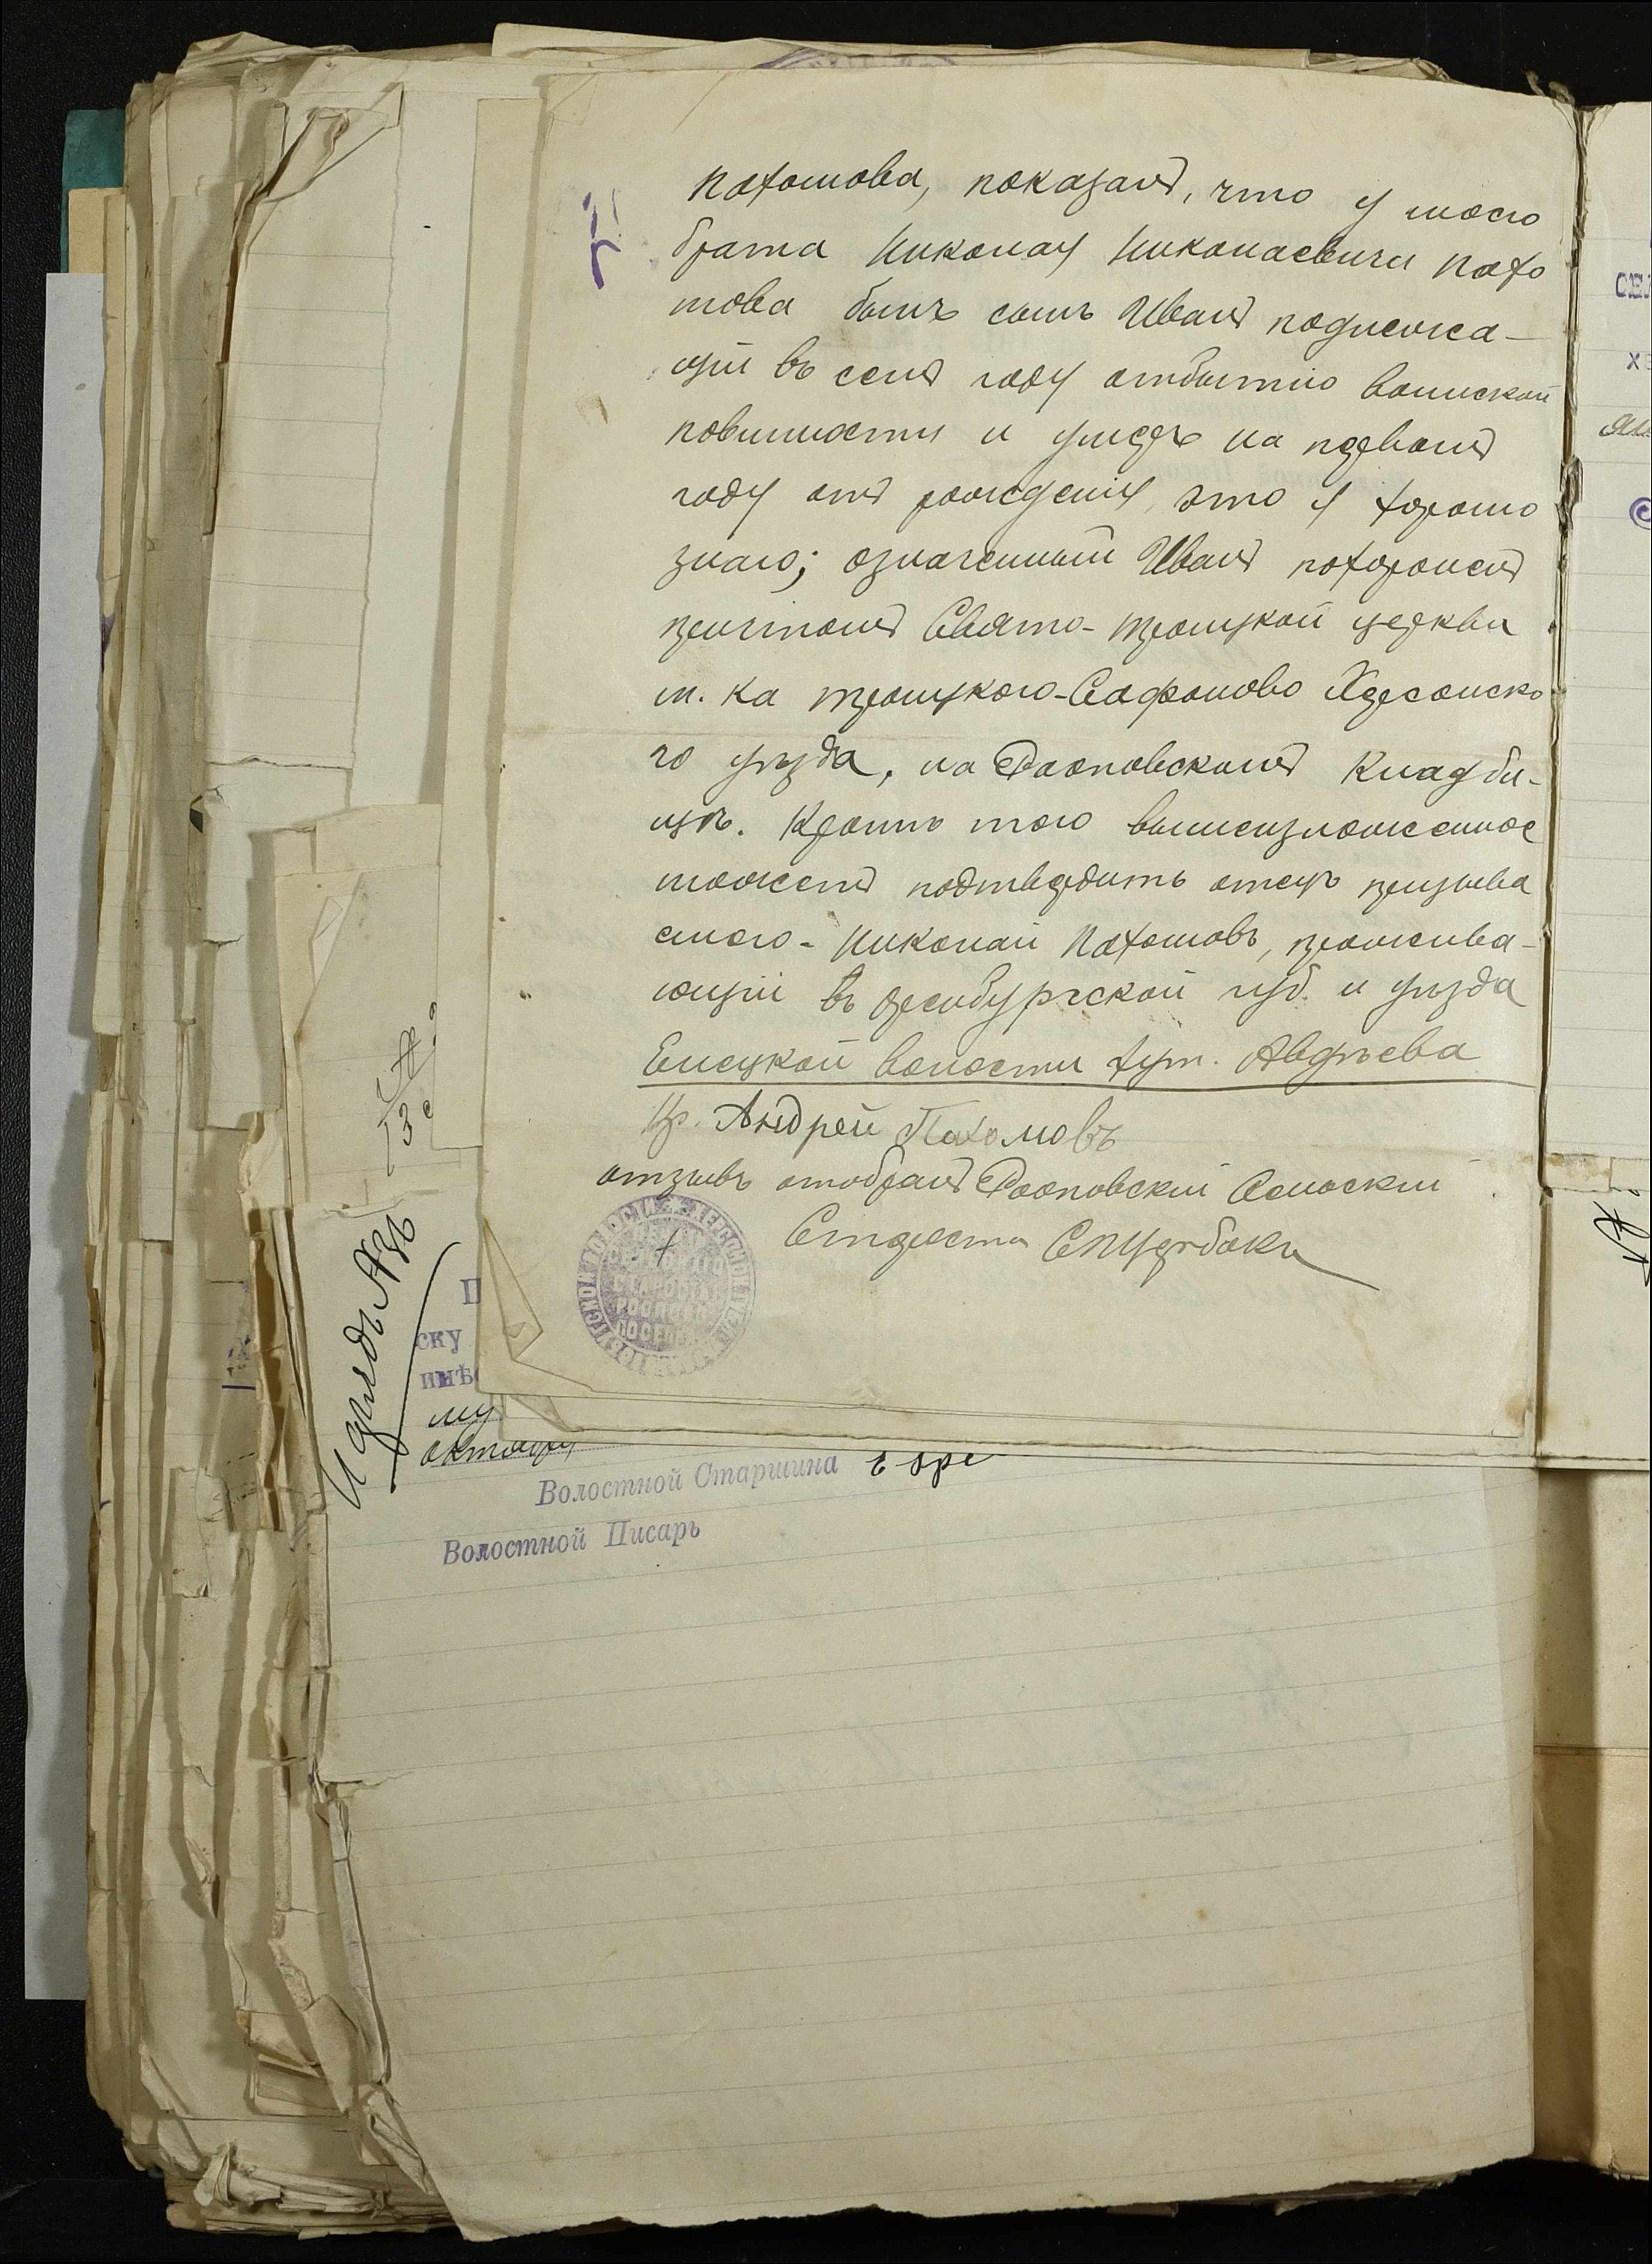 Пахомова, показалъ, что у моего
брата Николая Николаевича Пахо
мова былъ сынъ Иванъ подлежа-
щій въ семъ году отбытію воинской
повинности и умеръ на первомъ
году отъ рожденія, это я хорошо
знаю; означенный Иванъ похороненъ
причтомъ Свято-Троицкой церкви
м. ка Троицкого-Сафоново Херсонско
го уѣзда, на Рооповскомъ Кладби-
щѣ. Кромѣ того вышеизложенное
можетъ подтвердить отецъ призыва
емого - Николай Пахомовъ, прожива-
ющій въ Оренбургской губ. и уѣзда
Елецкой волости хут. Авдѣева
Кр. Андрей Пахомовъ
отзывъ отобралъ Рооповскій Сельскій
Староста Щербака
Нарядъ №36
ску
инѣ
му
октября
Волостной Старшина
Волостной Писарь